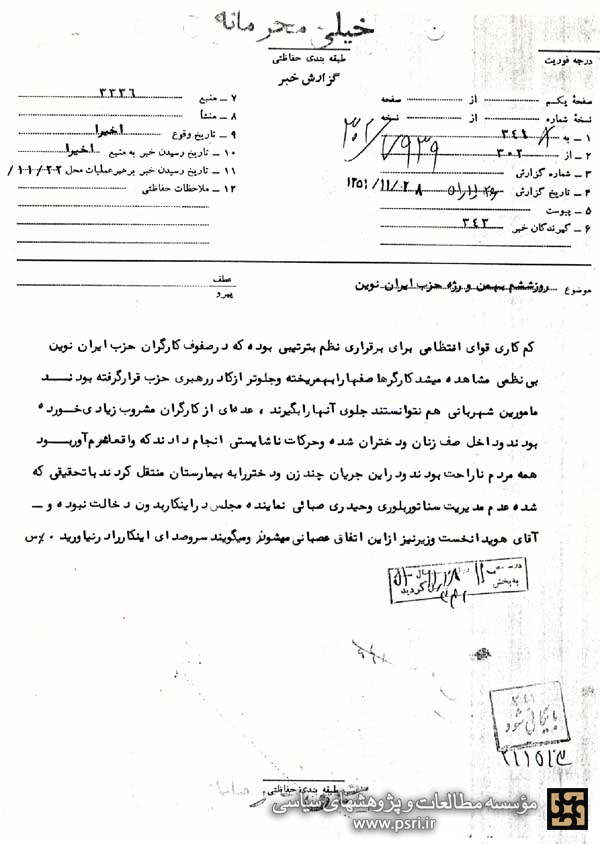 خیلی محرمانه
طبقه بندی حفاظتی
گزارش خبر
درجه فوریت
صفحهٔ یکم از صفحه
نسخهٔ شماره از نسخه
۱ ـ به ۳۴۱
۲ ـ از ۳۰۲
۳ ـ شماره گزارش
۴ ـ تاریخ گزارش ۱۳۵۱/۱۱/۲۸
۵ ـ پیوست
۶ ـ گیرندگان خبر ۳۴۳
۷ ـ منبع ۳۳۳۶
۸ ـ منشأ
۹ ـ تاریخ وقوع اخیرا
۱۰ ـ تاریخ رسیدن خبر به منبع اخیرا
۱۱ ـ تاریخ رسیدن خبر برهبر عملیات محل ۱۱/۲۲/
۱۲ ـ ملاحظات حفاظتی
موضوع روزششم بهمن و رژه حزب ایران نوین
عطف
پیرو
کم کاری قوای انتظامی برای برقراری نظم بترتیبی بوده که درصفوف کارگران حزب ایران نوین
بی نظمی مشاهده میشد کارگرها صفهارابهمریخته وجلوتر ازکادررهبری حزب قرارگرفته بودند
مامورین شهربانی هم نتوانستند جلوی آنهارابگیرند ، عده‌ای از کارگران مشروب زیادی‌خورده
بودند وداخل صف زنان ودختران شده وحرکات ناشایستی انجام دادند که واقعا شرم‌آوربود
همه مردم ناراحت بودند ودراین جریان چند زن ودختررابه بیمارستان منتقل کردند باتحقیقی که
شده عدم مدیریت سناتوربلوری وحیدری صبائی نماینده مجلس دراینکاربدون دخالت نبوده و ـ
آقای هویدا نخست وزیرنیز ازاین اتفاق عصبانی میشوند ومیگویند سروصدای اینکاررادرنیاورید
بایگانی شود
طبقه بندی حفاظتی
مؤسسه مطالعات و پژوهشهای سیاسی
www.psri.ir